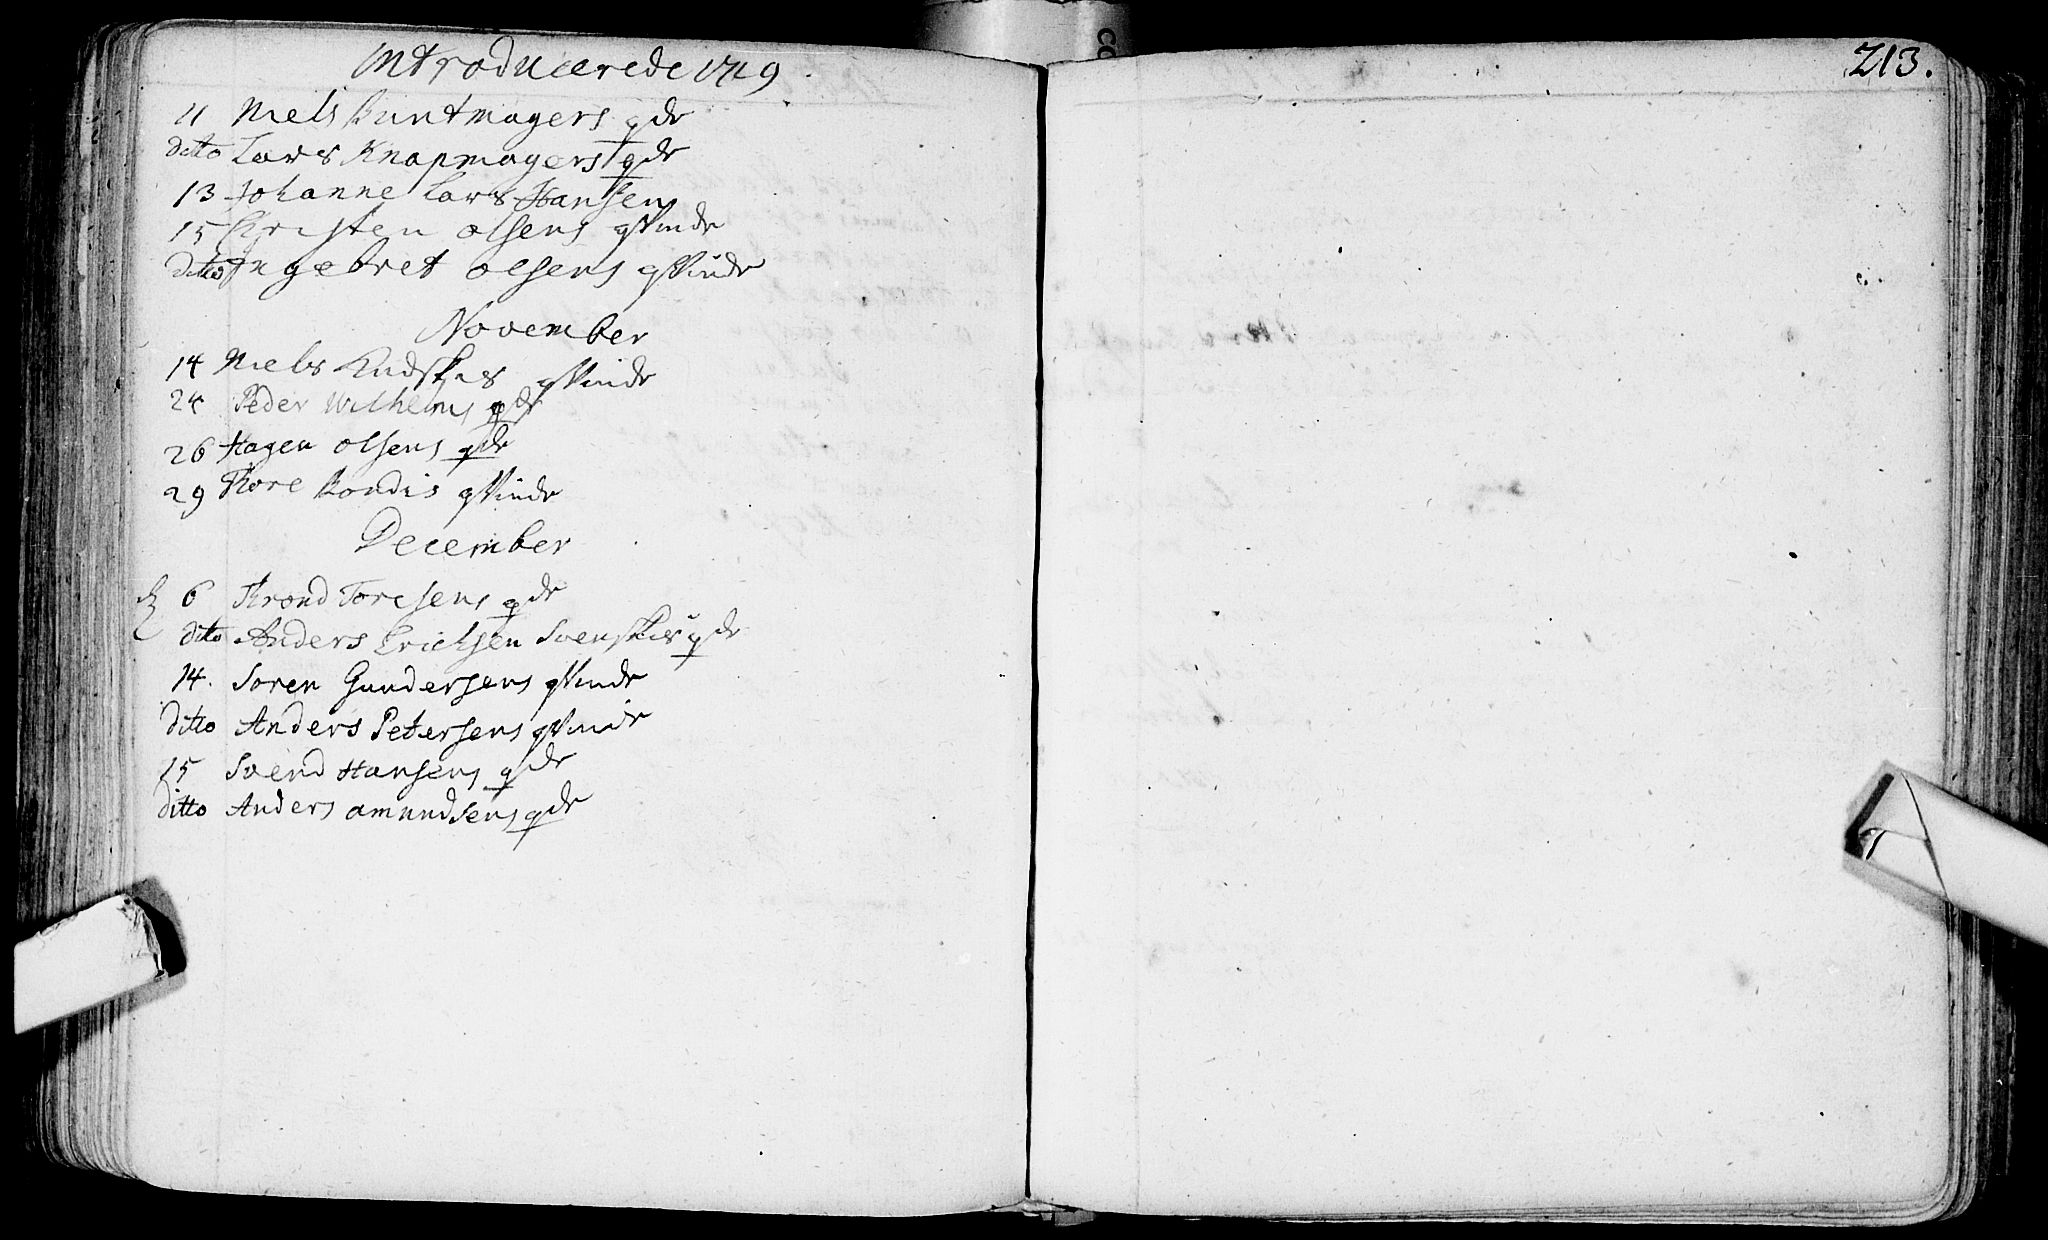 Introducerede 1719
11 Niels Buntmagers qde
ditto Lars Knapmagers qde
13 Johanne Lars Hansens
15 Christen olsens qvinde
ditto Ingebret olsens qvinde
November
14 Niels qvinde
24 Peder Wilhelms qde
26 Hagen olsens qde
29 Thore Bondis qvinde
December
6 Thrond Toresens qde
ditto Anders Ericksen Svenskes qde
14. Soren Gundersens qvinde
ditto Anders Petersens qvinde
15 Svend Hansens qde
ditto Anders amundsens qde
213.